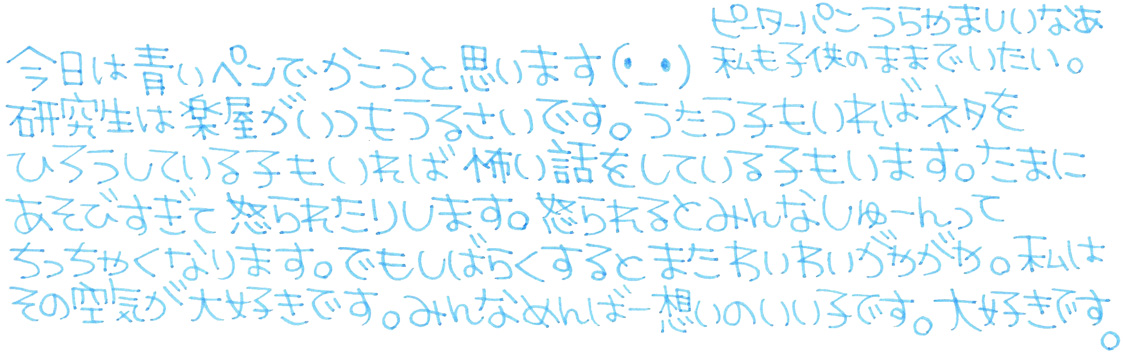 ピーターパンうらやましいなあ
私も子供のままでいたい。
今日は青いペンでかこうと思います(•_•)
研究生は楽屋がいつもうるさいです。うたう子もいればネタを
ひろうしている子もいれば怖い話をしている子もいます。たまに
あそびすぎて怒られたりします。怒られるとみんなしゅーんって
ちっちゃくなります。でもしばらくするとまたわいわいがやがや。私は
その空気が大好きです。みんなめんばー想いのいい子です。大好きです
。